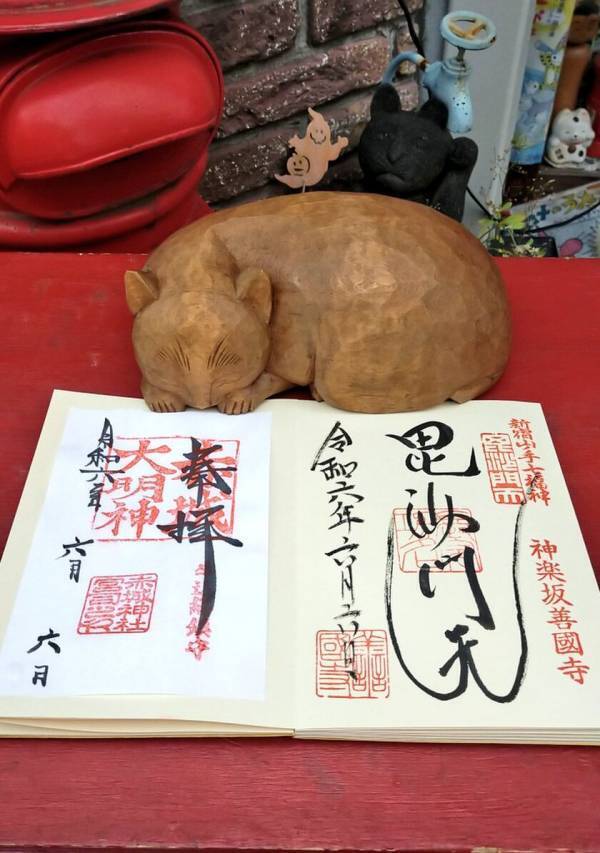 新宿山ノ手七福神
神楽坂善國寺
毘沙門天
令和六年六月六日
奉拝
赤城
大明神
赤城神社
令和六年
六月
六日